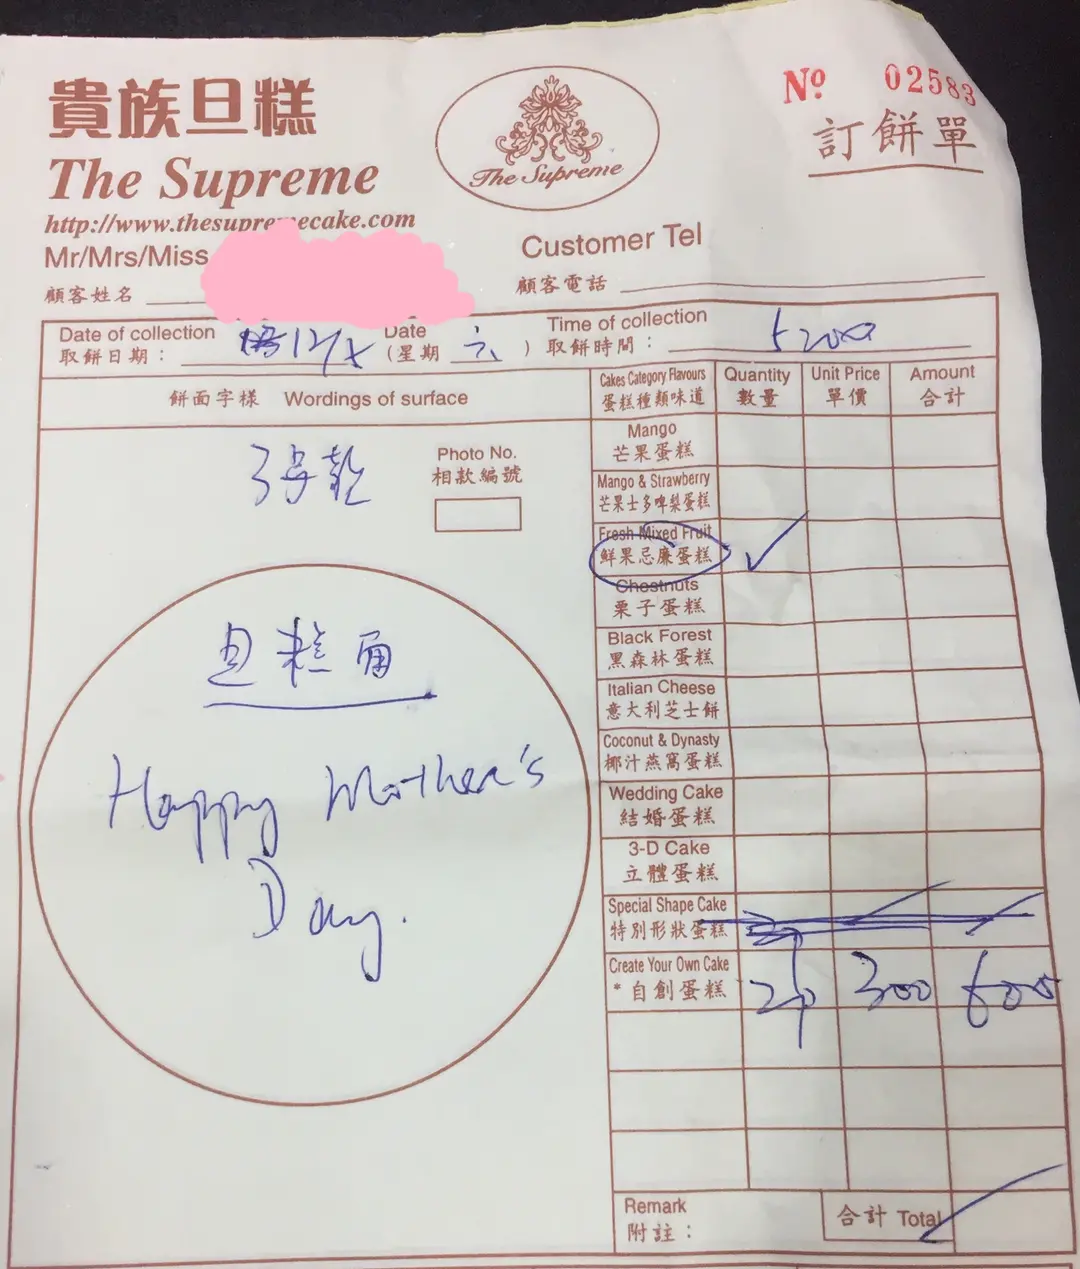 貴族旦糕
The Supreme
http://www.thesupremecake.com
The Supreme
Nº 02583
訂餅單
Mr/Mrs/Miss
顧客姓名
Customer Tel
顧客電話
Date of collection
取餅日期：
12/5
Date
(星期 六 )
Time of collection
取餅時間：
餅面字樣 Wordings of surface
Cakes Category Flavours
蛋糕種類味道
Quantity
數量
Unit Price
單價
Amount
合計
Photo No.
相款編號
旦糕面
Happy Mother's
Day.
Mango
芒果蛋糕
Mango & Strawberry
芒果士多啤梨蛋糕
Fresh Mixed Fruit
鮮果忌廉蛋糕
Chestnuts
栗子蛋糕
Black Forest
黑森林蛋糕
Italian Cheese
意大利芝士餅
Coconut & Dynasty
椰汁燕窩蛋糕
Wedding Cake
結婚蛋糕
3-D Cake
立體蛋糕
Special Shape Cake
特別形狀蛋糕
Create Your Own Cake
* 自創蛋糕
2p 300 600
Remark
附註：
合計 Total